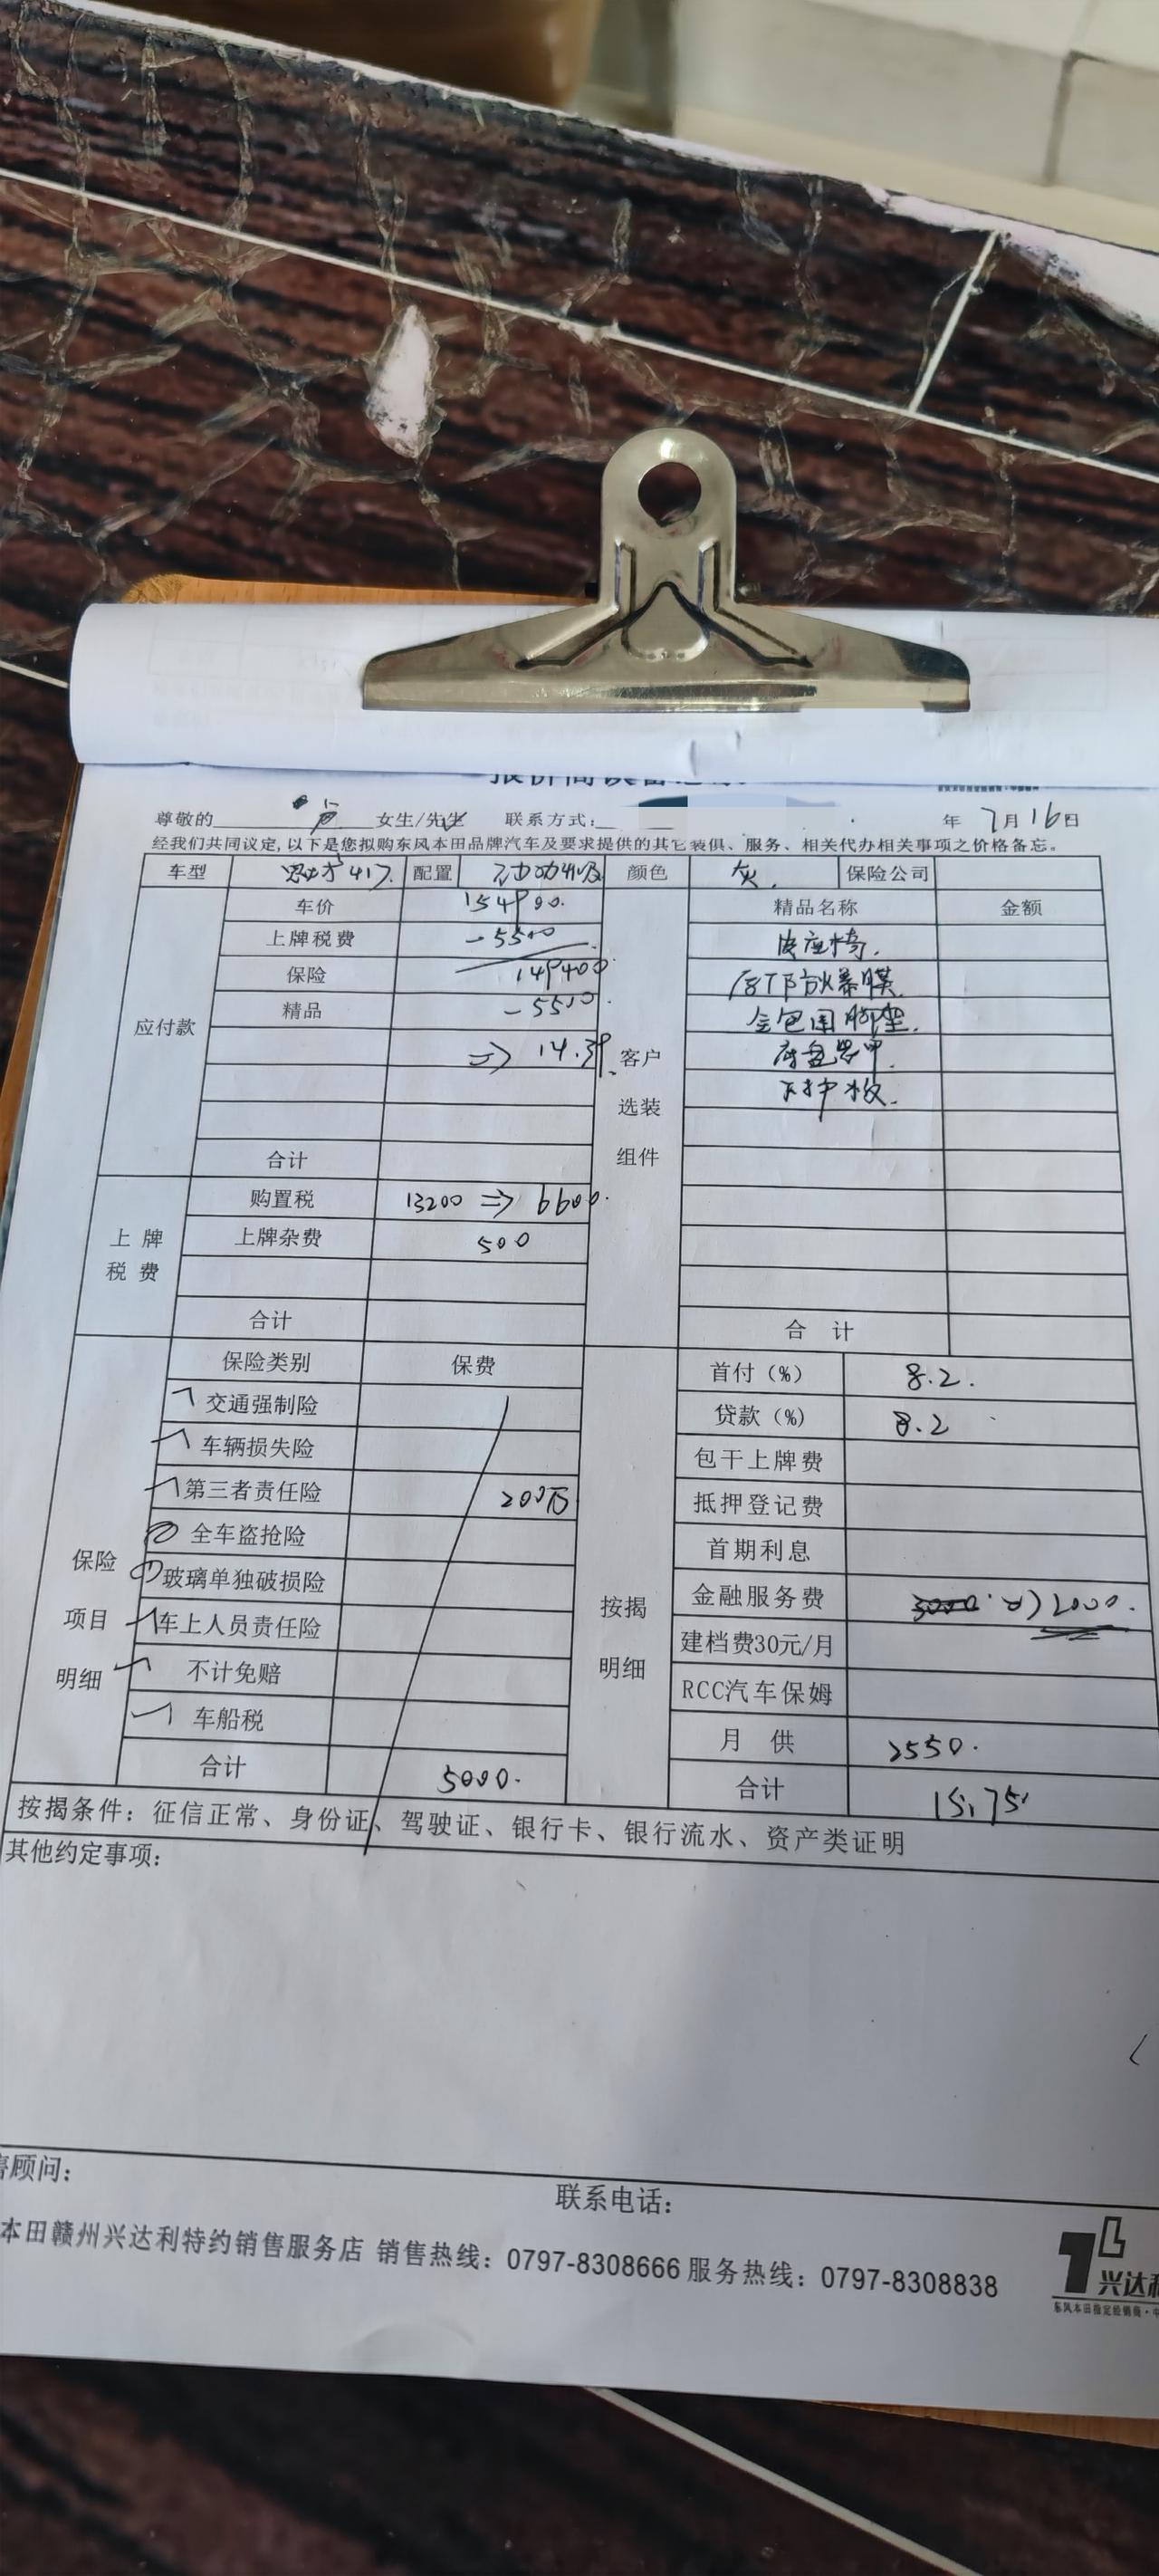 尊敬的 女生/先生 联系方式: 年 7月16日
经我们共同议定,以下是您拟购东风本田品牌汽车及要求提供的其它装俱、服务、相关代办相关事项之价格备忘。
车型 思域 417. 配置 颜色 灰. 保险公司
应付款
车价 154900.
上牌税费 -5500
保险 149400
精品 -5500.
⇒ 14.39.
合计
客户
选装
组件
精品名称 金额
皮座椅.
防爆膜
全包围脚垫.
底盘装甲
下护板.
合 计
上 牌
税 费
购置税 13200 ⇒ 6600.
上牌杂费 500
合计
保险
项目
明细
保险类别 保费
交通强制险
车辆损失险
第三者责任险 200万
全车盗抢险
玻璃单独破损险
车上人员责任险
不计免赔
车船税
合计 5000.
按揭
明细
首付(%) 8.2.
贷款(%) 8.2
包干上牌费
抵押登记费
首期利息
金融服务费 3000. ⇒ 2000.
建档费30元/月
RCC汽车保姆
月 供 2550.
合计 15.75
按揭条件: 征信正常、身份证、驾驶证、银行卡、银行流水、资产类证明
其他约定事项:
顾问:
联系电话:
本田赣州兴达利特约销售服务店 销售热线: 0797-8308666 服务热线: 0797-8308838
兴达
东风本田指定经销商